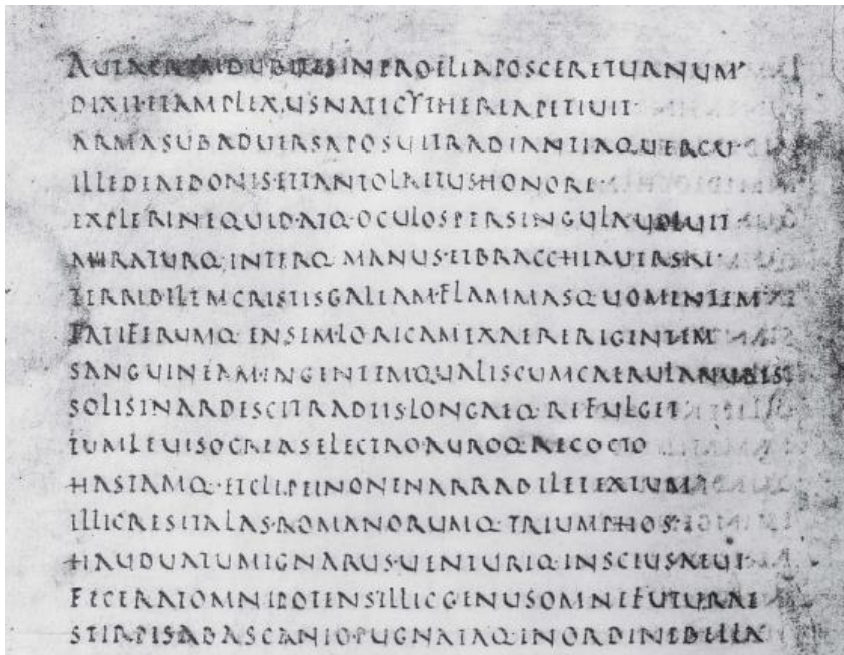 AUTACREMDUBITESINPROELIAPOSCERETURNUM
DIXITETAMPLEXUSNATICYTHEREAPETIUIT
ARMASUBADUERSAPOSUITRADIANTIAQUERCU·
ILLEDEAEDONISETTANTOLAETUSHONORE·
EXPLERINEQUIDATQ·OCULOSPERSINGULAUOLUIT·
MIRATURQ·INTERQ·MANUS·ETBRACCHIAUERSAT·
TERRIBILEMCRISTISGALEAM·FLAMMASQUOMENTEM
FATIFERUMQ·ENSEM·LORICAMEXAERERIGENTEM
SANGUINEAM·INGENTEMQUALISCUMCAERULANUBES
SOLISINARDESCITRADIIS·LONGAEQ·REFULGET
TUMLEUISOCREASELECTRO·AUROQ·RECOCTO
HASTAMQ·ETCLIPEINONENARRABILETEXTUM
ILLICRESITALAS·ROMANORUMQ·TRIUMPHOS·
HAUDUATUMIGNARUS·UENTURIQ·INSCIUSAEUI·
FECERATOMNIPOTENS·ILLICGENUSOMNEFUTURAE
STIRPISABASCANIO·PUGNATAQ·INORDINEBELLA